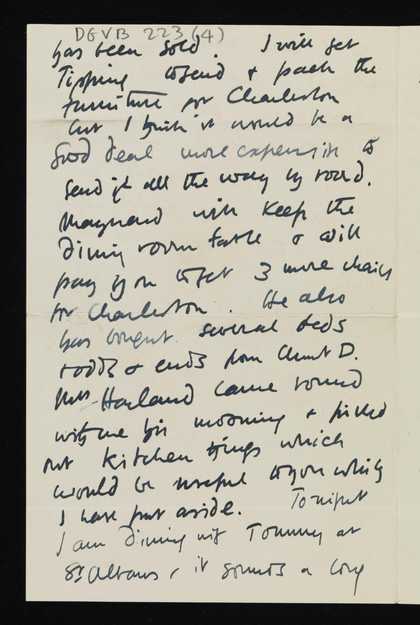 DGVB 223 (4)
has been sold. I will get
Tipping to send & pack the
furniture for Charleston
but I think it would be a
good deal more expensive to
send it all the way by road.
Maynard will keep the
dining room table & will
pay you to get 3 more chairs
for Charleston. He also
has bought several beds
& odds & ends from Aunt D.
Mrs Harland came round
with me this morning & picked
out kitchen things which
would be useful to you which
I have put aside. Tonight
I am dining with Tommy at
St Albans, it sounds a long